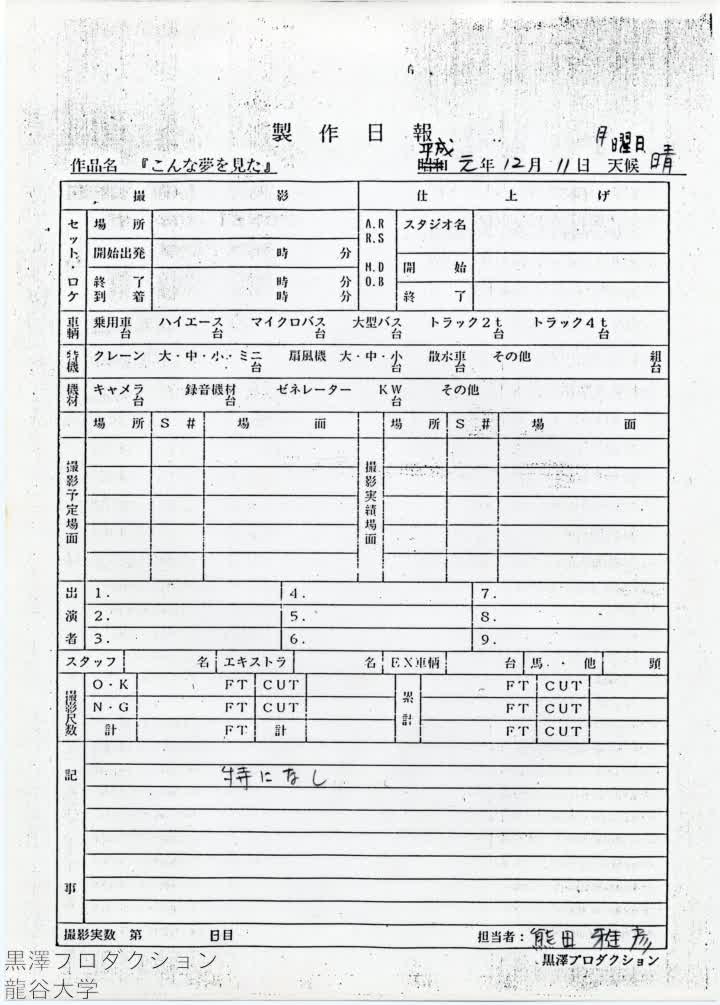 製作日報
月曜日
作品名 『こんな夢を見た』 昭和 平成 元年 12月 11日 天候 晴
撮影 仕上げ
セット・ロケ 場所 A.R R.S スタジオ名
開始出発 時 分 M.D O.B 開始
終了 時 分 終了
到着 時 分
車輌 乗用車 台 ハイエース 台 マイクロバス 台 大型バス 台 トラック2t 台 トラック4t 台
特機 クレーン 大・中・小・ミニ 台 扇風機 大・中・小 台 散水車 台 その他 組 台
機材 キャメラ 台 録音機材 台 ゼネレーター KW 台 その他
場所 S# 場面 場所 S# 場面
撮影予定場面 撮影実績場面
出演者 1. 4. 7.
2. 5. 8.
3. 6. 9.
スタッフ 名 エキストラ 名 EX車輌 台 馬・他 頭
撮影尺数 O・K FT CUT 累計 FT CUT
N・G FT CUT FT CUT
計 FT 計 FT CUT
記事 特になし
撮影実数 第 日目 担当者: 熊田雅彦
黒澤プロダクション
黒澤プロダクション
龍谷大学